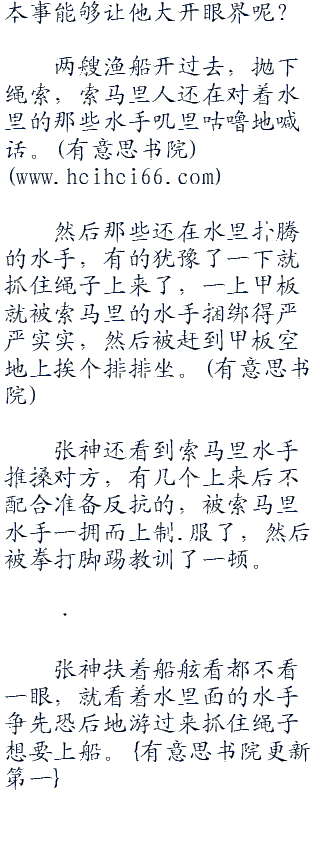 本事能够让他大开眼界呢？
两艘渔船开过去，抛下
绳索，索马里人还在对着水
里的那些水手叽里咕噜地喊
话。(有意思书院)
(www.hcihci66.com)
然后那些还在水里扑腾
的水手，有的犹豫了一下就
抓住绳子上来了，一上甲板
就被索马里的水手捆绑得严
严实实，然后被赶到甲板空
地上挨个排排坐。(有意思书
院)
张神还看到索马里水手
推搡对方，有几个上来后不
配合准备反抗的，被索马里
水手一拥而上制.服了，然后
被拳打脚踢教训了一顿。
.
张神扶着船舷看都不看
一眼，就看着水里面的水手
争先恐后地游过来抓住绳子
想要上船。{有意思书院更新
第一}